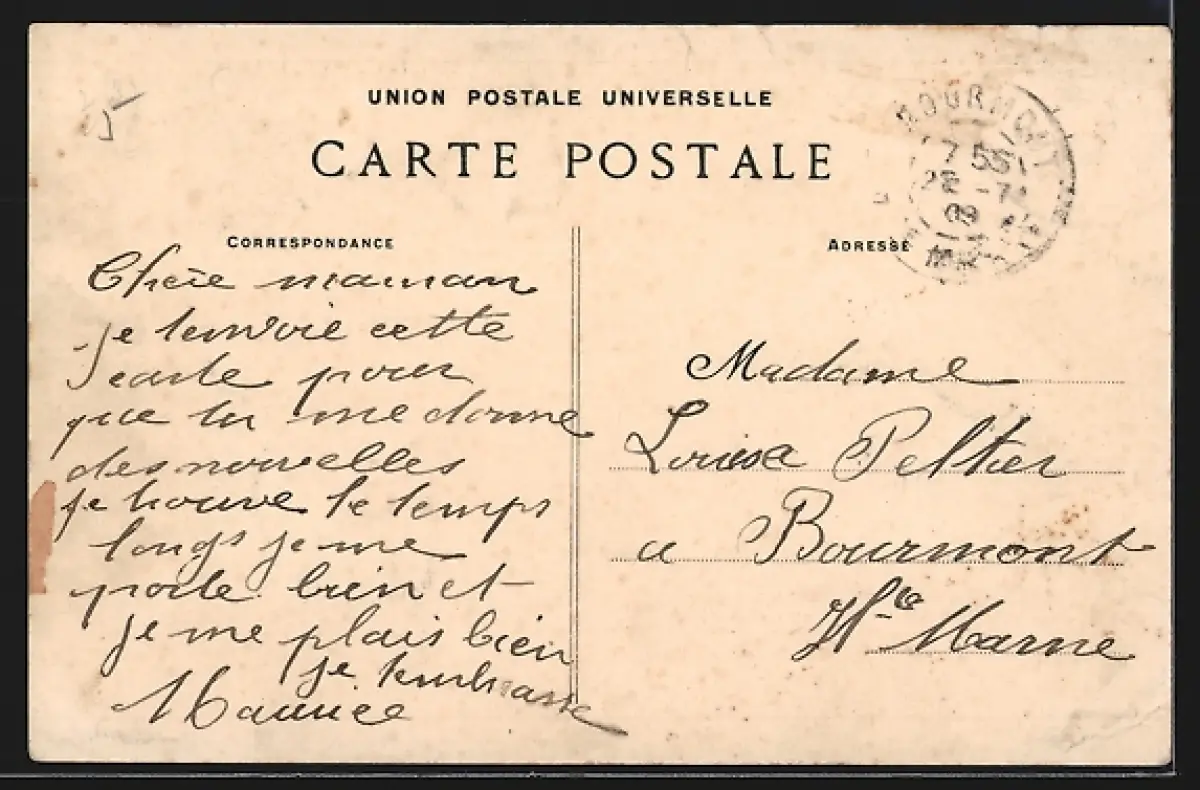 UNION POSTALE UNIVERSELLE
CARTE POSTALE
CORRESPONDANCE
ADRESSE
BOURMONT
7 55
22 -7
09
5
Cherie maman
je t'envoie cette
carte pour
que tu me donne
des nouvelles
je trouve le temps
longs je me
porte bien et
je me plais bien
je t'embrasse
Maurice
Madame
Louisa Peltier
a Bourmont
Hte Marne